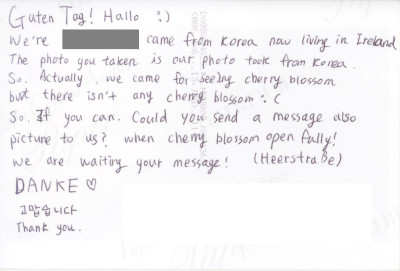 Guten Tag! Hallo :)
We're came from Korea now living in Ireland
The photo you taken is our photo took from Korea.
So. Actually we came for seeing cherry blossom
but there isn't any cherry blossom :(
So. If you can. Could you send a message also
picture to us? when cherry blossom open fully!
we are waiting your message! (Heerstraße)
DANKE ♡
고맙습니다
Thank you.